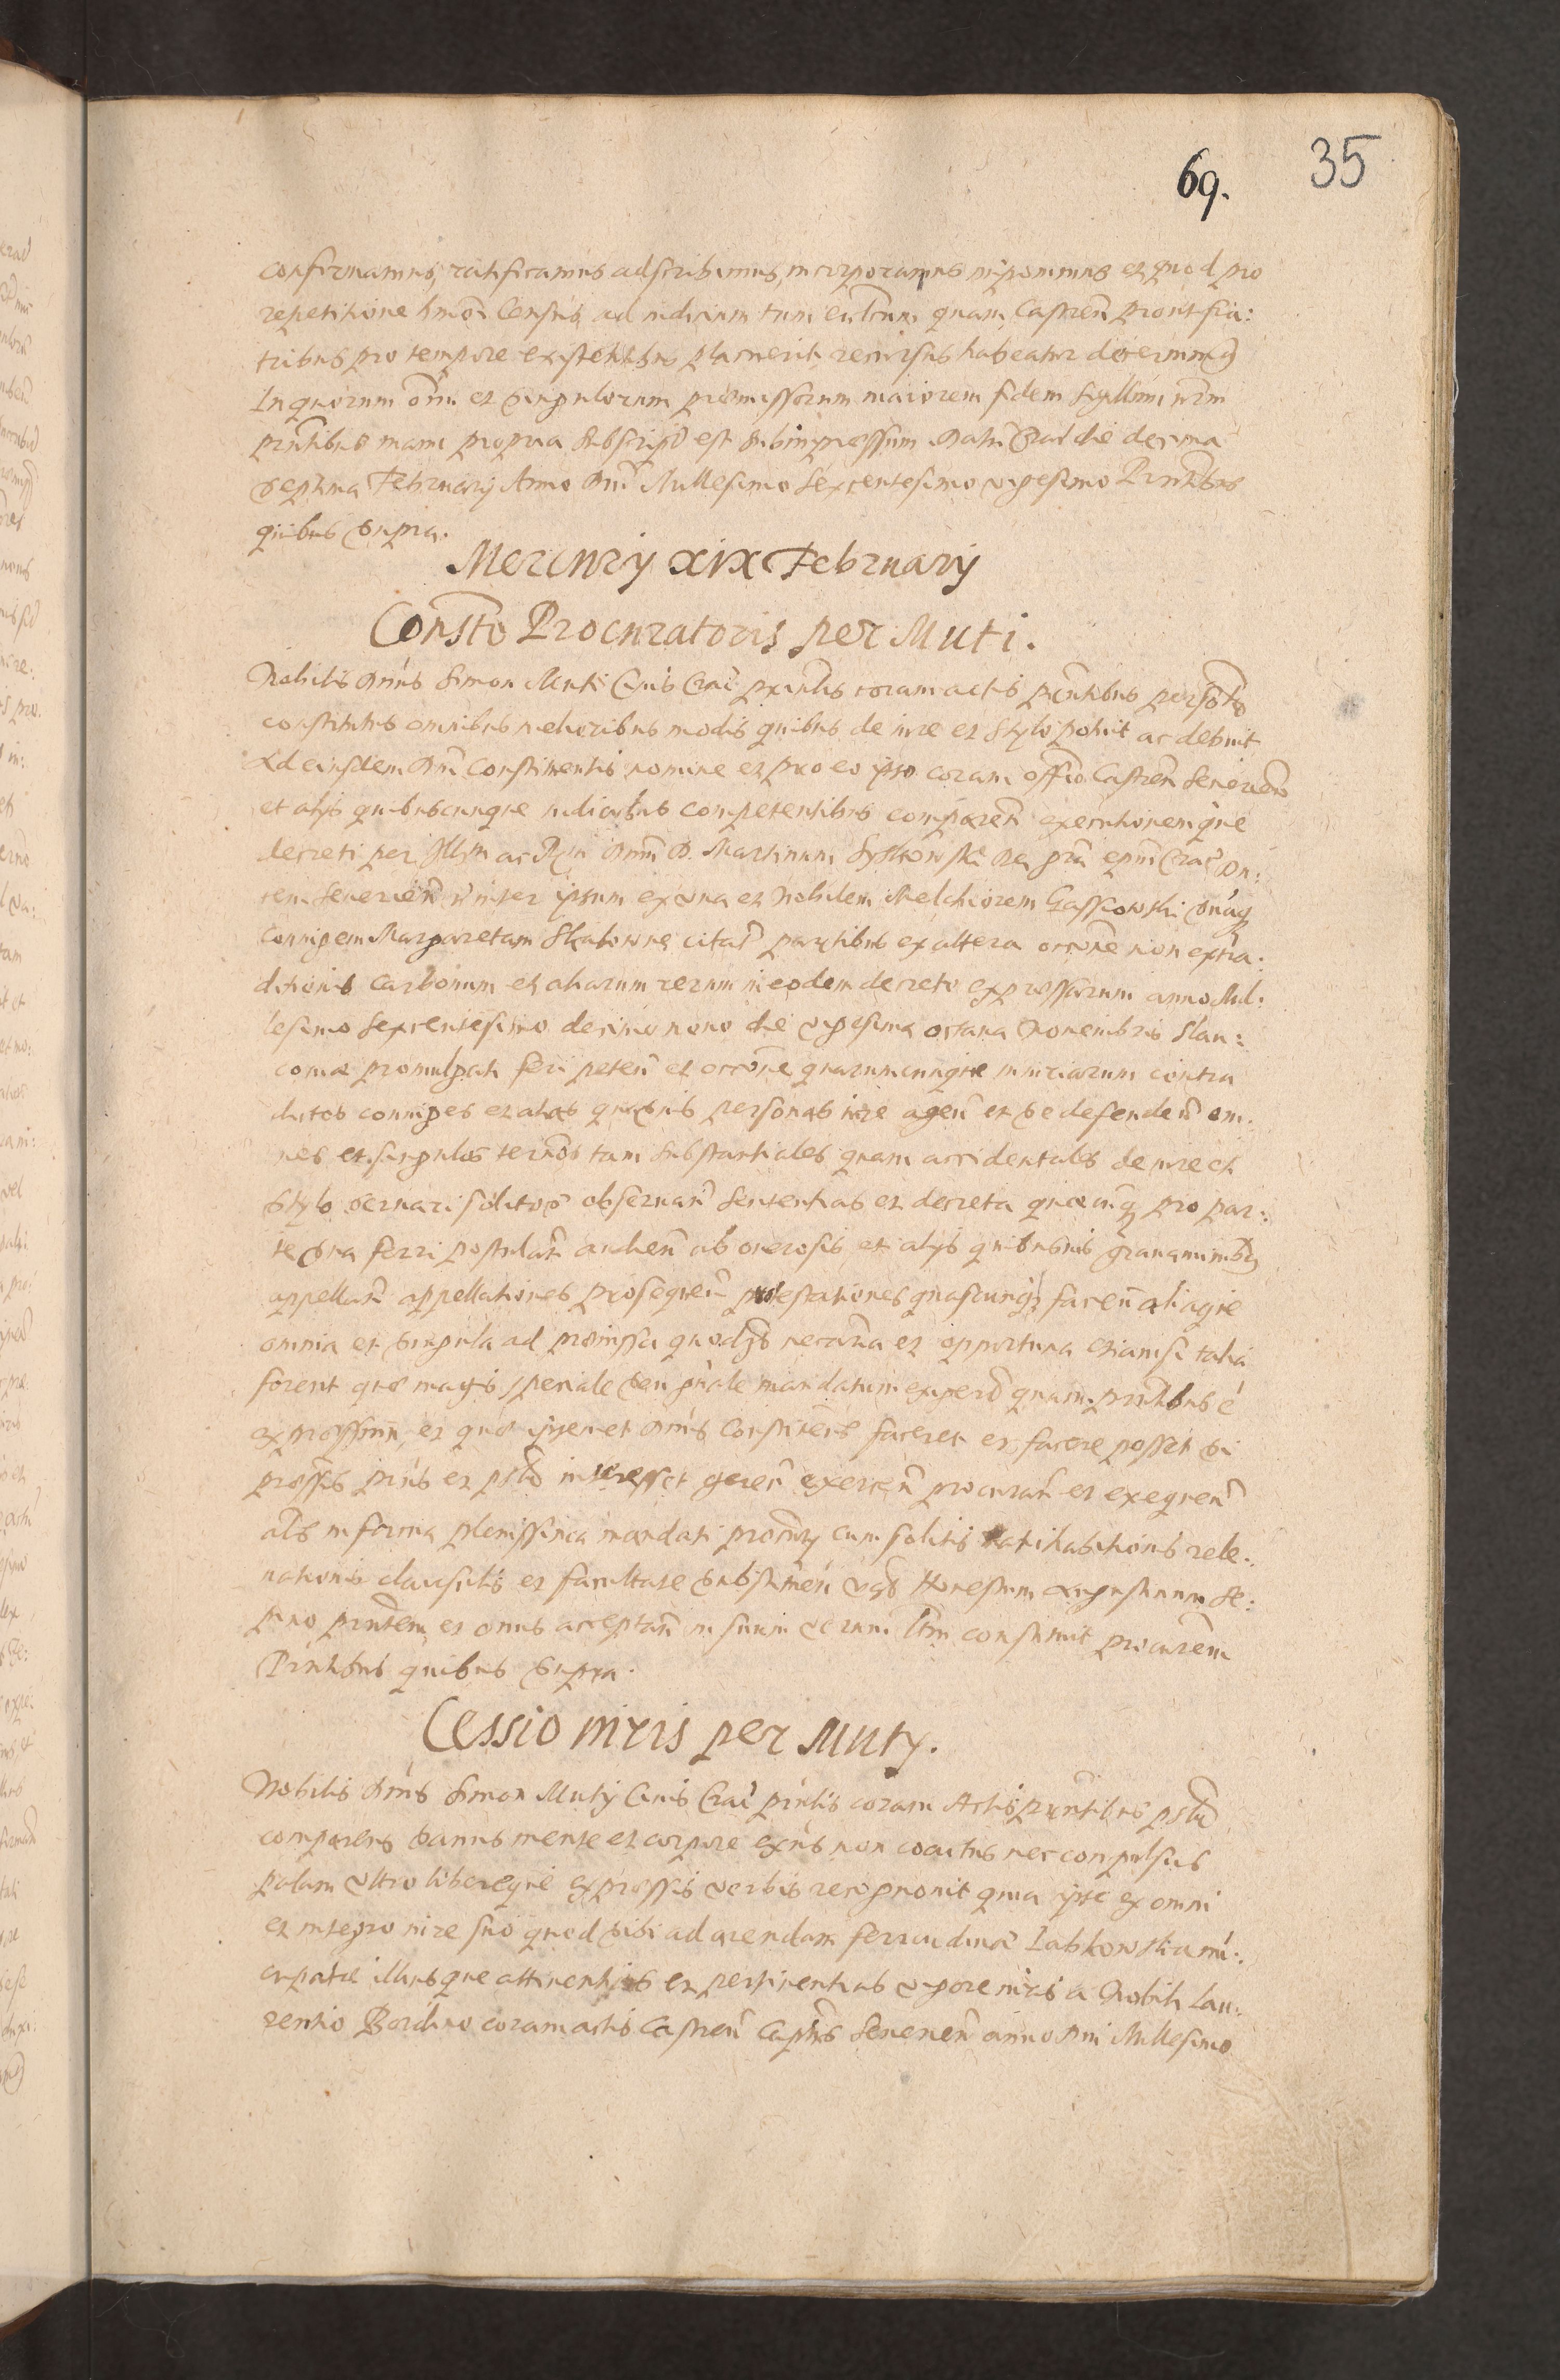 69. 35
confirmamus, ratificamus adscribimus, incorporamus imponimus et quod pro
repetitione hmoi Census ad iudicium tum eccles quam Castren prout fra:
tribus pro tempore existentibus placuerit recursus habeatur
In quorum oim et singulorum præmissorum maiorem fidem sigillum nrm
pntibus manu propria subscrip est subimpressum Datum Crac die decima
septima February Anno Dni Millesimo Sexcentesimo vigesimo Pntibus
quibus supra.
Mercury xix February
Constto Procuratoris per Muti.
Nobilis Dnus Simon Muti Civis Crac pntis coram actis pntibus personalr
constitutus omnibus melioribus modis quibus de iure et stylo potuit ac debuit
Ad eiusdem Dni Constituentis nomine et pro eo ipso coram offo Castren Severien
et alys quibuscunque iudicibus competentibus comparen executionemque
decreti per Illm ac Rm Dnum D. Martinum Szyszkowski Dei gra epum Crac Du:
cem Severien inter ipsum ex una et Nobilem Melchiorem Gassiowski
coniugem Margaretam citat partibus ex altera occone non extra:
ditionis carbonum et aliarum rerum in eodem decreto expressarum anno Mil:
lesimo Sexcentesimo decimo nono die vigesima octava Novembris Slau:
coviæ promulgati feri peten et occone quarumcunque iniuriarum contra
dictos coniuges et alias quasvis personas iure agen et se defenden om:
nes et singulos termos tam substantiales quam accidentales de iure et
stylo servari solitos observan sententias et decreta quæcunq pro par:
te sua ferri postulan audien ab onerosis et alys quibusvis gravaminibus
appellan appellationes prosequen protestationes quascunq facien aliaque
omnia et singula ad præmissa quodlibet necaria et opportuna etiamsi talia
forent quæ magis speciale seu gnale mandatum exigeret quam pntibus e
expressum, et quæ ipsemet Dnus Constituens faceret et facere posset si
præmissis pns et prlr interesset geren exercen procuran et exequen
als in forma plenissima mandati procury cum solitis ratihabitionis rele:
vationis clausulis et facultate substituen Honestum Augustinum
pntem et onus acceptan in suum verum ltm constituit procurem
Pntibus quibus supra.
Cessio iuris per Muty.
Nobilis Dnus Simon Muty Civis Crac pntis coram Actis pntibus prlr
comparens sanus mente et corpore exns non coactus nec conpulsus
palam ultro libereque expressis verbis recognovit quia ipse ex omni
et integro iure suo quod sibi ad arendam ferricudinæ Labkowska nu:
cupatæ illiusque attinentias et pertinentias vigore iuris a Nobili Lau:
rentio coram actis Castren Severien anno Dni Millesimo